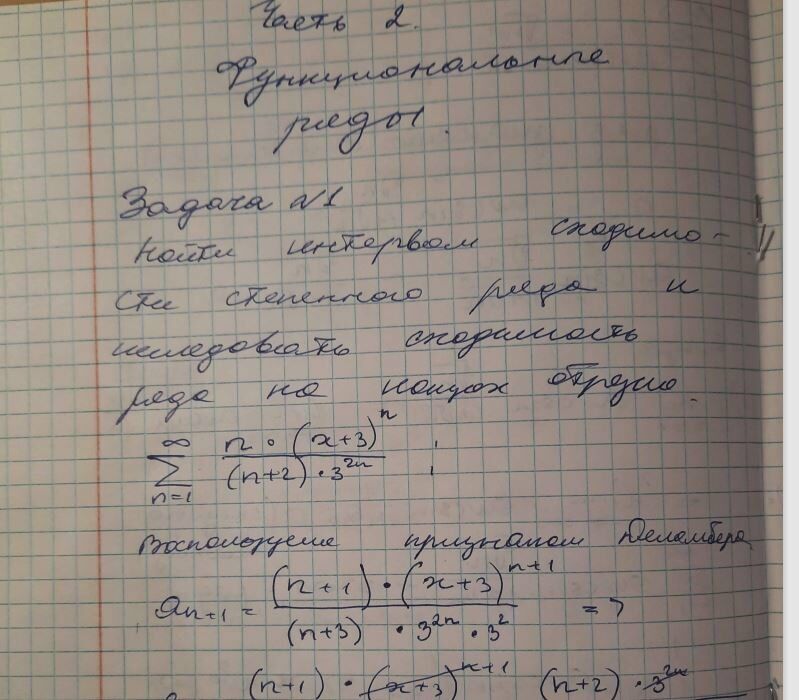 Часть 2.
Функциональные
ряды.
Задача №1
Найти интервал сходимо-
сти степенного ряда и
исследовать сходимость
ряда на концах отрезка.
∞
∑ n · (x+3)^n / (n+2) · 3^{2n} ;
n=1
Воспользуемся признаком Деламбера
a_{n+1} = (n+1) · (x+3)^{n+1} / (n+3) · 3^{2n} · 3^2 =>
(n+1) · (x+3)^{n+1} (n+2) · 3^{2n}